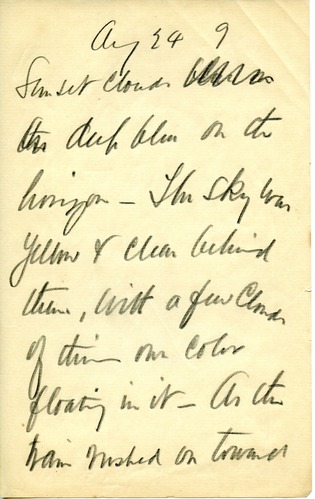 Aug 24 9
Sunset clouds
deep blue on the
horizon — The sky was
yellow & clear behind
them, with a few clouds
of their own color
floating in it — As the
train rushed on toward